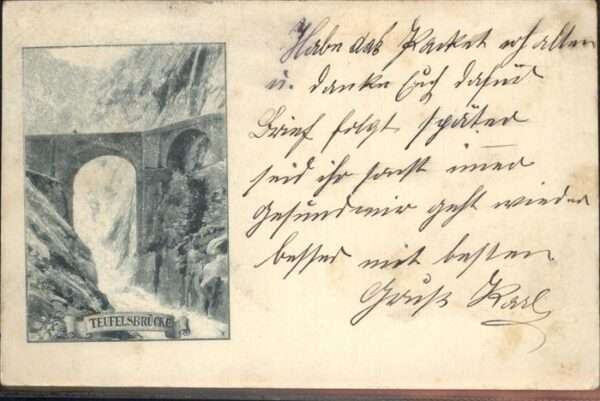 TEUFELSBRÜCKE
Habe das Packet erhalten
u. danke Euch dafür
Brief folgt später
seid ihr sonst immer
Gesund mir geht wieder
besser mit besten
Gruß Karl